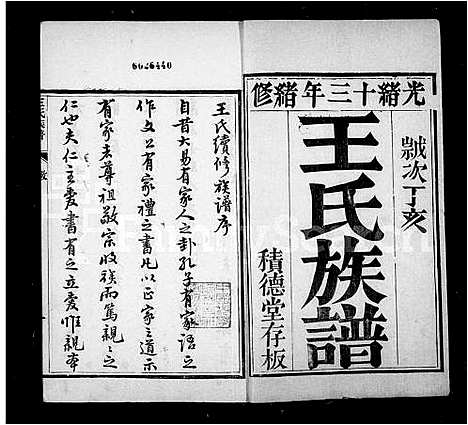 光緒十三年續修
歲次丁亥
王氏族譜
積德堂存板
6626440
王氏續修族譜序
自昔大易有家人之卦孔子有家語之
作文公有家禮之書凡以正家之道示
有家者尊祖敬宗收族而篤親之
仁也夫仁主愛書有之立愛惟親本